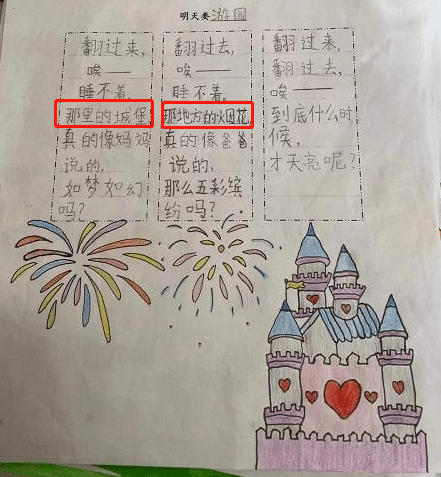 明天要游园
翻过来,
唉——
睡不着,
那里的城堡,
真的像妈妈
说的,
如梦如幻
吗?
翻过去,
唉——
睡不着,
那地方的烟花,
真的像爸爸
说的,
那么五彩缤
纷吗?
翻过来,
翻过去,
唉——
到底什么时
候,
才天亮呢?